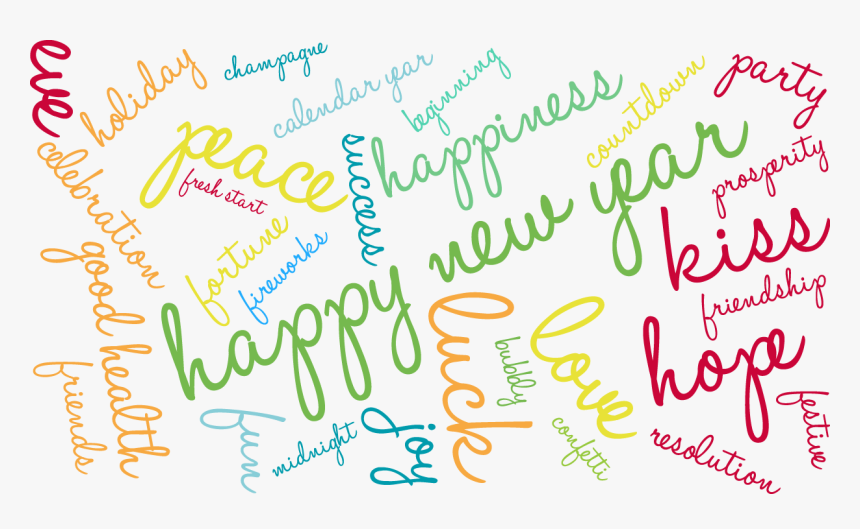 eve
holiday
champagne
calendar year
beginning
countdown
party
peace
happiness
celebration
fresh start
success
prosperity
happy new year
kiss
fortune
fireworks
good health
friendship
luck
love
hope
bubbly
friends
fun
midnight
joy
confetti
resolution
festive